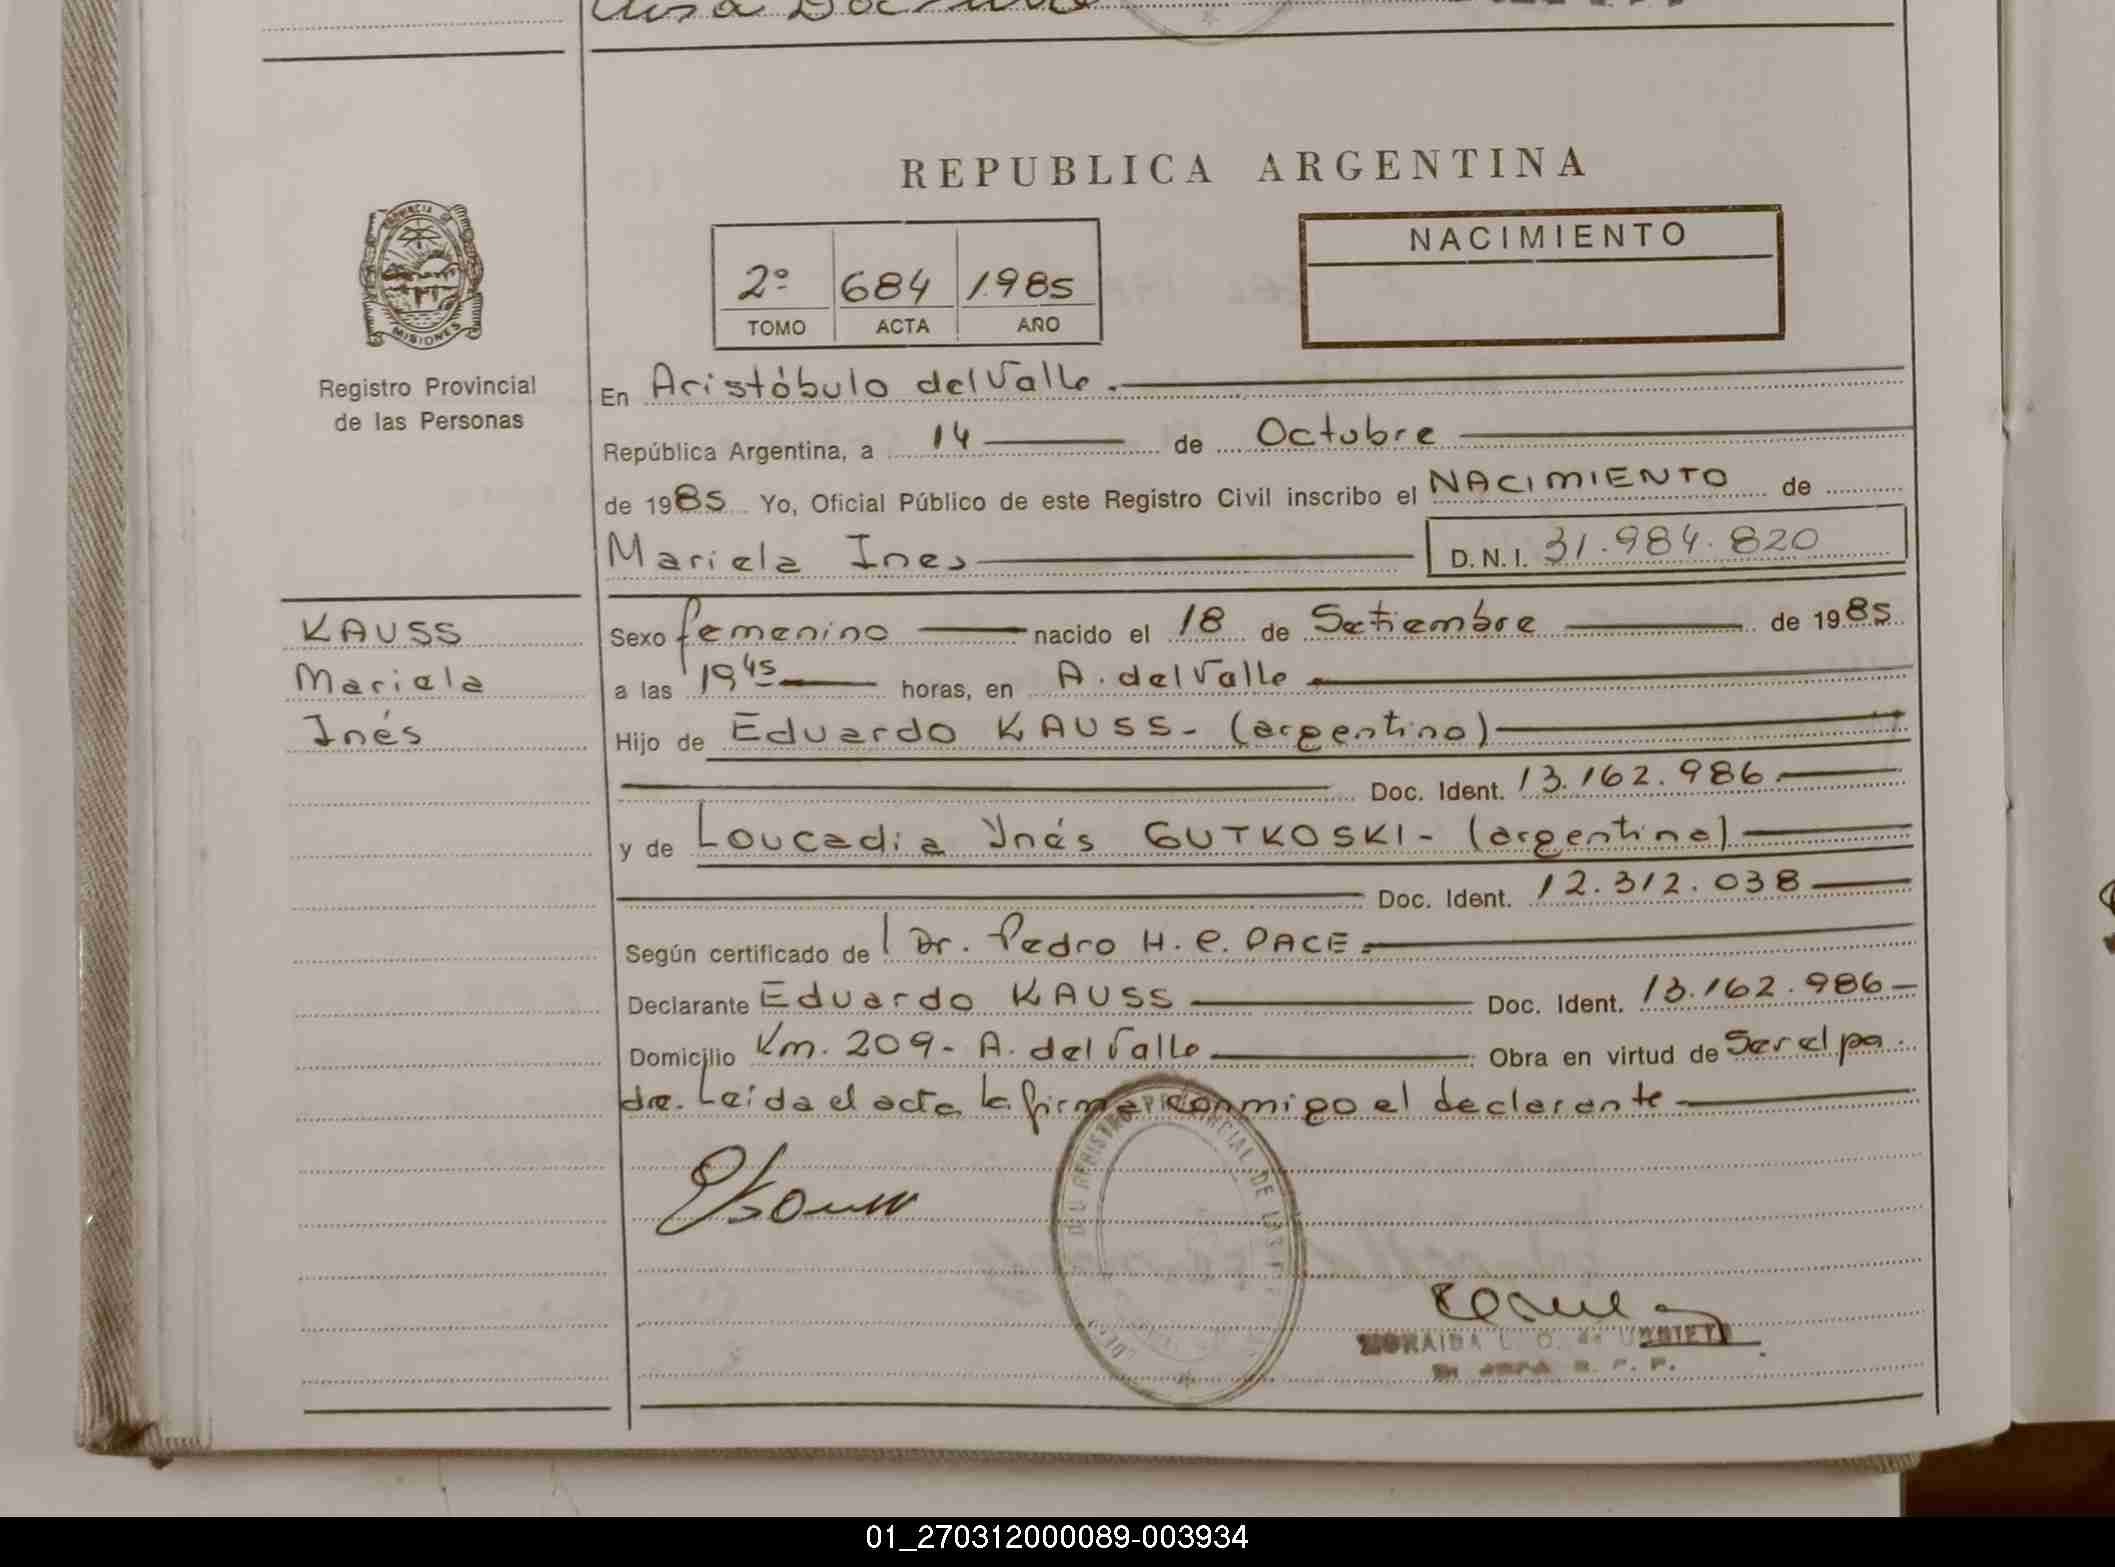 REPUBLICA ARGENTINA
PROVINCIA DE
MISIONES
Registro Provincial
de las Personas
2º 684 1985
TOMO ACTA AÑO
NACIMIENTO
En Aristóbulo del Valle.
República Argentina, a 14 de Octubre
de 1985 Yo, Oficial Público de este Registro Civil inscribo el NACIMIENTO de
Mariela Ines D.N.I. 31.984.820
KAUSS
Mariela
Inés
Sexo femenino nacido el 18 de Setiembre de 1985
a las 19 45 horas, en A. del Valle
Hijo de Eduardo KAUSS - (argentino)
Doc. Ident. 13.162.986
y de Loucadia Ynés GUTKOSKI - (argentina)
Doc. Ident. 12.312.038
Según certificado de Dr. Pedro H. C. PACE.
Declarante Eduardo KAUSS Doc. Ident. 13.162.986
Domicilio Km. 209 - A. del Valle Obra en virtud de Ser el pa
dre. Leída el acta la firma conmigo el declarante
REGISTRO PROVINCIAL DE LAS
ZORAIDA L. O. de
01_270312000089-003934